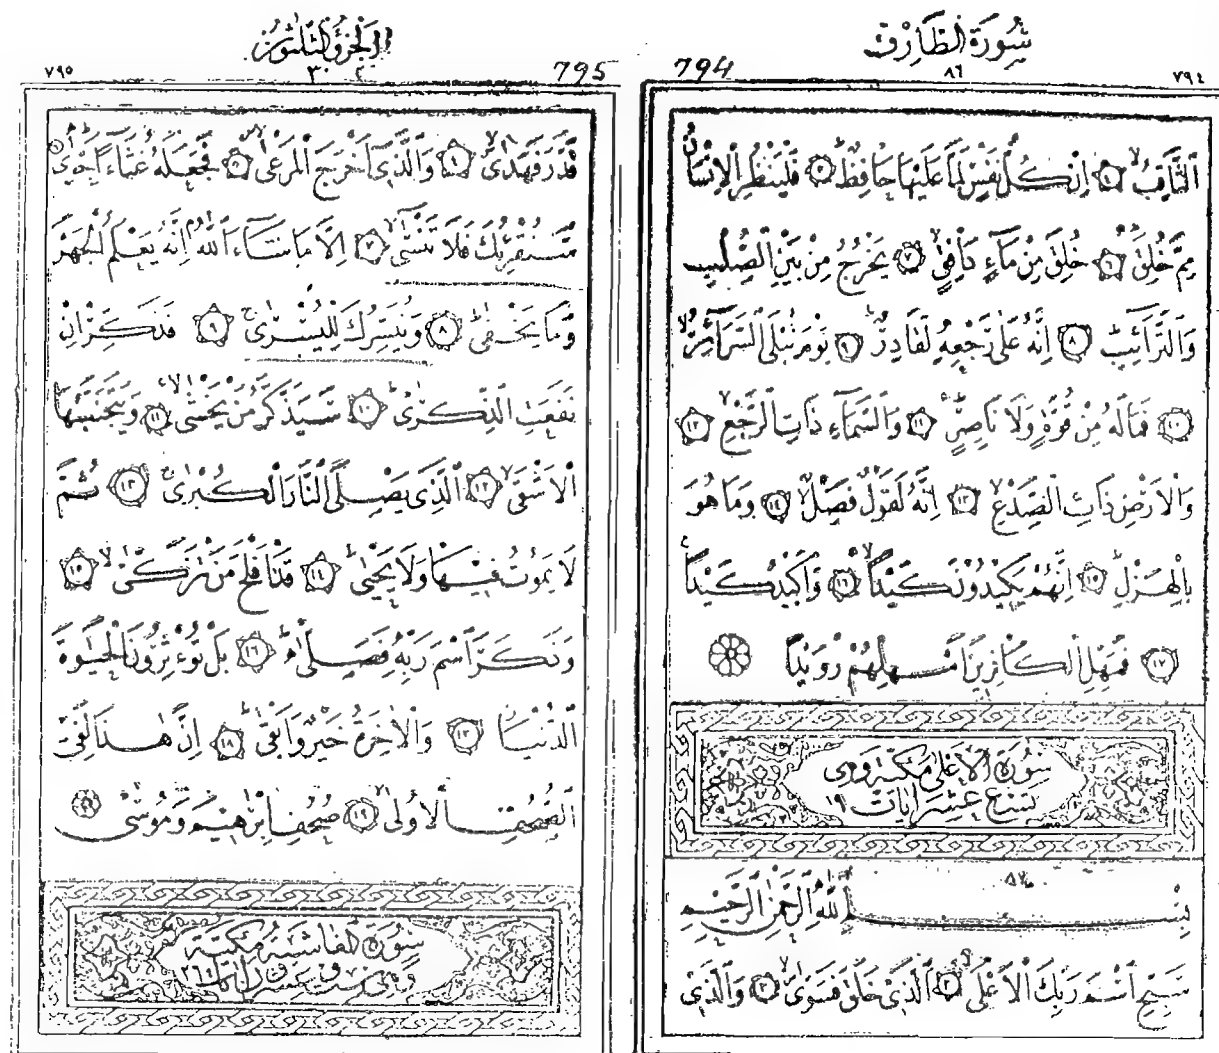 سُورَةُ الطَّارِقِ
٧٩٤ ٨٦ 794
الثَّاقِبُ ۝ اِنْ كُلُّ نَفْسٍ لَمَّا عَلَيْهَا حَافِظٌ ۝ فَلْيَنْظُرِ الْاِنْسَانُ
مِمَّ خُلِقَ ۝ خُلِقَ مِنْ مَاءٍ دَافِقٍ ۝ يَخْرُجُ مِنْ بَيْنِ الصُّلْبِ
وَالتَّرَائِبِ ۝ اِنَّهُ عَلٰى رَجْعِهِ لَقَادِرٌ ۝ يَوْمَ تُبْلَى السَّرَائِرُ
۝ فَمَا لَهُ مِنْ قُوَّةٍ وَلَا نَاصِرٍ ۝ وَالسَّمَاءِ ذَاتِ الرَّجْعِ ۝
وَالْاَرْضِ ذَاتِ الصَّدْعِ ۝ اِنَّهُ لَقَوْلٌ فَصْلٌ ۝ وَمَا هُوَ
بِالْهَزْلِ ۝ اِنَّهُمْ يَكِيدُونَ كَيْدًا ۝ وَاَكِيدُ كَيْدًا
۝ فَمَهِّلِ الْكَافِرِينَ اَمْهِلْهُمْ رُوَيْدًا
سُورَةُ الْاَعْلٰى مَكِّيَّةٌ وَهِىَ
تِسْعَ عَشَرَ اٰيَات ١٩
٨٧
بِسْمِ اللّٰهِ الرَّحْمٰنِ الرَّحِيمِ
سَبِّحِ اسْمَ رَبِّكَ الْاَعْلٰى ۝ اَلَّذِى خَلَقَ فَسَوّٰى ۝ وَالَّذِى
اَلْجُزْءُ الثَّلٰثُونَ
795 ٣٠ ٧٩٥
قَدَّرَ فَهَدٰى ۝ وَالَّذِى اَخْرَجَ الْمَرْعٰى ۝ فَجَعَلَهُ غُثَاءً اَحْوٰى
سَنُقْرِئُكَ فَلَا تَنْسٰى ۝ اِلَّا مَا شَاءَ اللّٰهُ اِنَّهُ يَعْلَمُ الْجَهْرَ
وَمَا يَخْفٰى ۝ وَنُيَسِّرُكَ لِلْيُسْرٰى ۝ فَذَكِّرْ اِنْ
نَفَعَتِ الذِّكْرٰى ۝ سَيَذَّكَّرُ مَنْ يَخْشٰى ۝ وَيَتَجَنَّبُهَا
الْاَشْقٰى ۝ اَلَّذِى يَصْلَى النَّارَ الْكُبْرٰى ۝ ثُمَّ
لَا يَمُوتُ فِيهَا وَلَا يَحْيٰى ۝ قَدْ اَفْلَحَ مَنْ تَزَكّٰى ۝
وَذَكَرَ اسْمَ رَبِّهِ فَصَلّٰى ۝ بَلْ تُؤْثِرُونَ الْحَيٰوةَ
الدُّنْيَا ۝ وَالْاٰخِرَةُ خَيْرٌ وَاَبْقٰى ۝ اِنَّ هٰذَا لَفِى
الصُّحُفِ الْاُولٰى ۝ صُحُفِ اِبْرٰهِيمَ وَمُوسٰى
سُورَةُ الْغَاشِيَةِ مَكِّيَّةٌ
وَهِىَ سِتٌّ وَعِشْرُونَ اٰيَات ٢٦